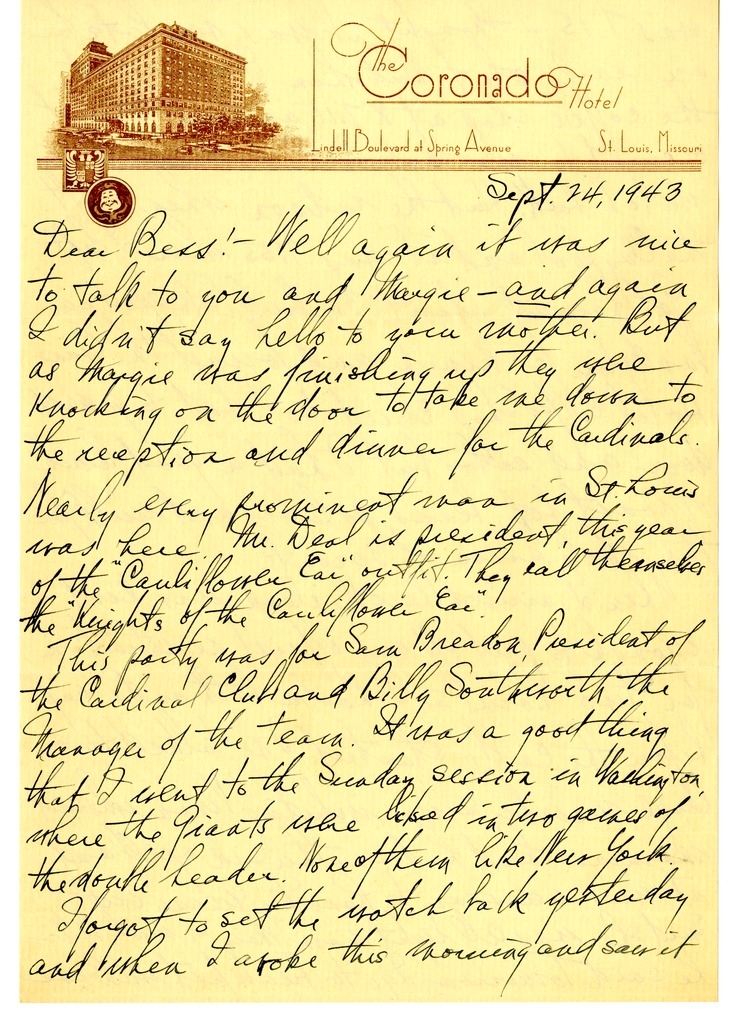 The Coronado Hotel
Lindell Boulevard at Spring Avenue St. Louis, Missouri
Sept. 24, 1943
Dear Bess:- Well again it was nice
to talk to you and Margie - and again
I didn't say hello to your mother. But
as Margie was finishing up they were
knocking on the door to take me down to
the reception and dinner for the Cardinals.
Nearly every prominent man in St. Louis
was here. Mr. Deal is president, this year
of the "Cauliflower Ear" outfit. They call themselves
the "Knights of the Cauliflower Ear".
This party was for Sam Breadon, President of
the Cardinal Club and Billy Southworth the
Manager of the team. It was a good thing
that I went to the Sunday session in Washington,
where the Giants were licked in two games of
the double header. None of them like New York.
I forgot to set the watch back yesterday
and when I awoke this morning and saw it